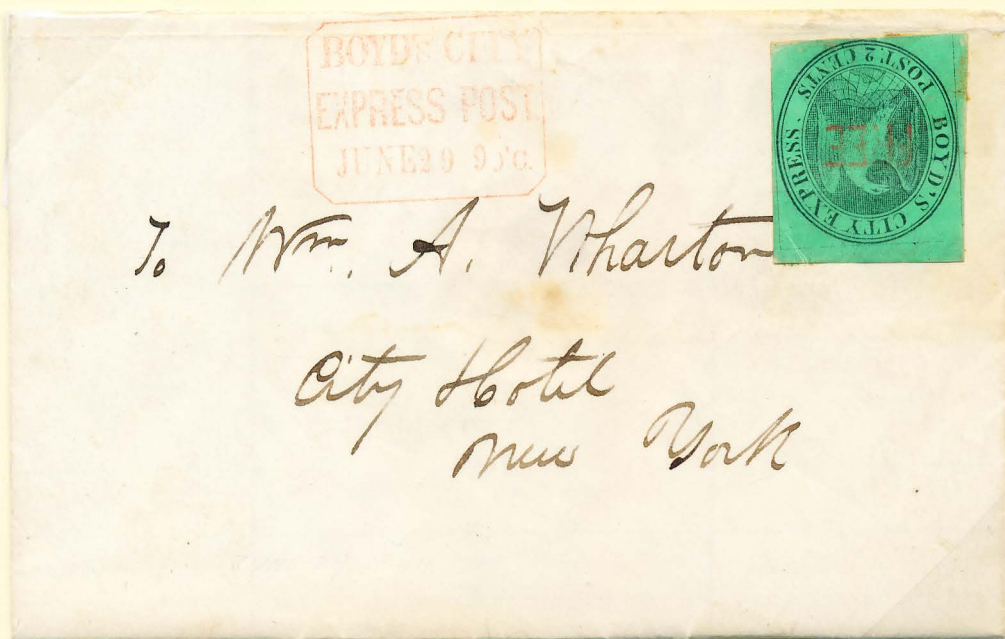 BOYD'S CITY
EXPRESS POST
JUNE 29 9 o'c.
BOYD'S CITY EXPRESS POST. 2 CENTS
FREE
To Wm. A. Wharton
City Hotel
New York